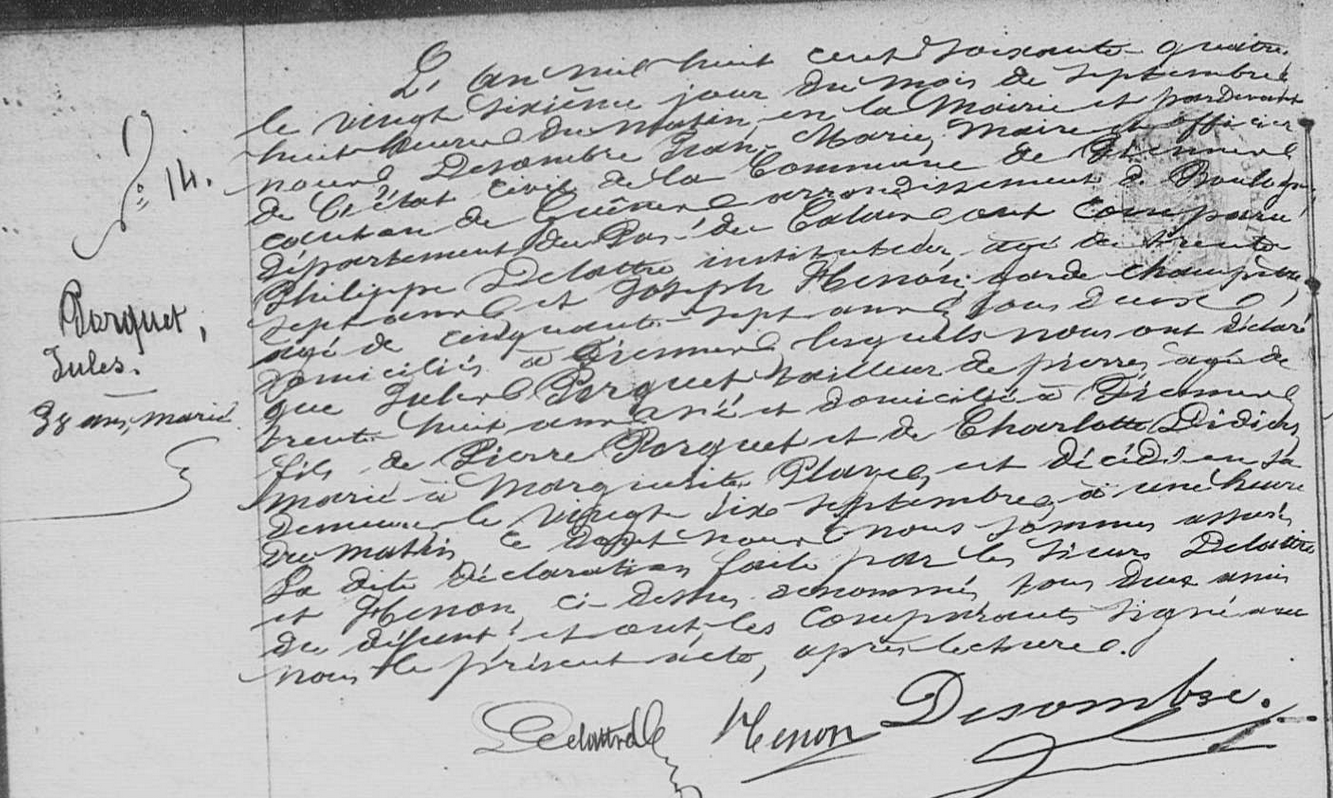 N° 14.
Parquet,
Jules.
38 ans, marié
L'an mil huit cent soixante-quatre
le vingt sixième jour du mois de septembre
huit heures du matin, en la Mairie et pardevant
nous Desombre Jean-Marie, Maire et officier
de l'état civil de la Commune de Fiennes
canton de Guînes arrondissement de Boulogne,
département du Pas-de-Calais ont comparu
Philippe Delattre, instituteur, agé de trente
sept ans et Joseph Henon, garde champêtre,
agé de cinquante-sept ans, tous deux
domiciliés à Fiennes, lesquels nous ont déclaré
que Jules Parquet tailleur de pierres, agé de
trente-huit ans né et domicilié à Fiennes
fils de Pierre Parquet et de Charlotte
marié à Marguerite est décédé en sa
demeure le vingt six septembre, à une heure
du matin, ce dont nous nous sommes assurés
La dite déclaration faite par les sieurs Delattre
et Henon, ci-dessus dénommés, tous deux amis
du défunt, et ont les comparants signé avec
nous le présent acte, après lecture.
Delattre Henon Desombre.